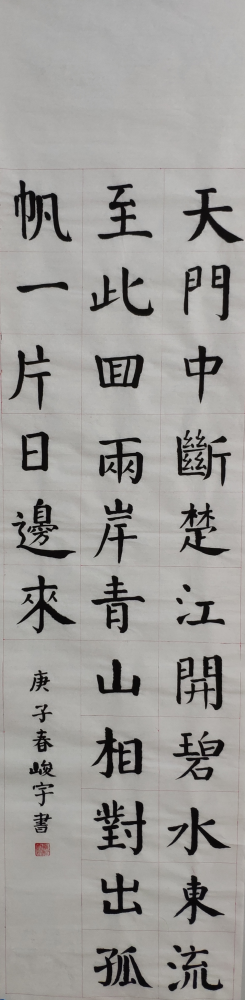 天門中斷楚江開碧水東流
至此回兩岸青山相對出孤
帆一片日邊來
庚子春峻宇書